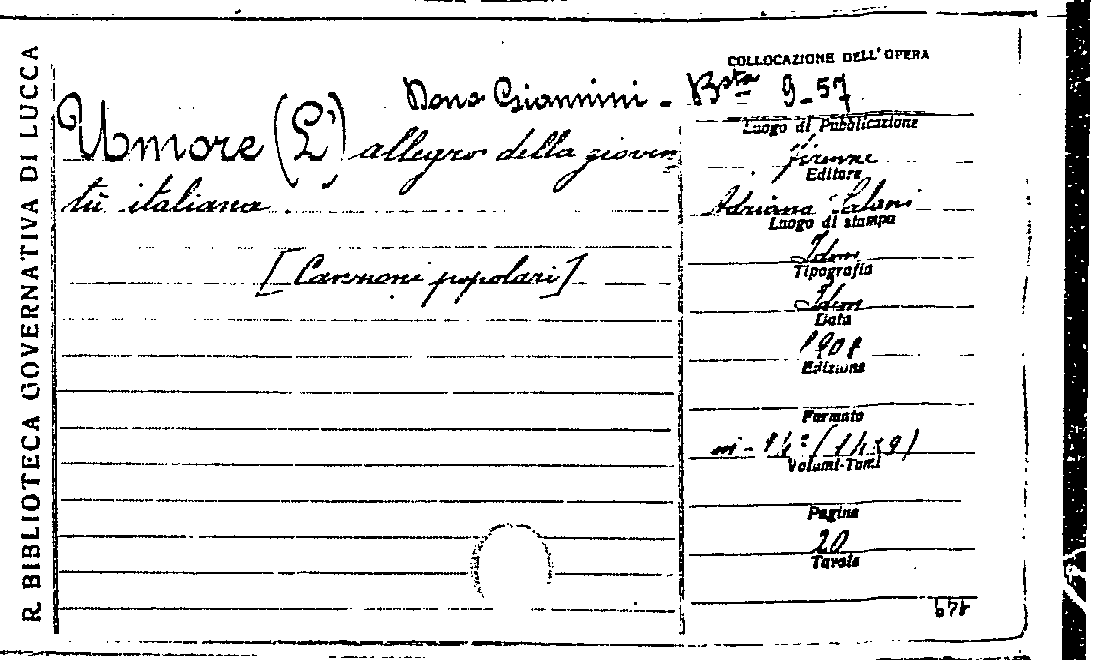 R. BIBLIOTECA GOVERNATIVA DI LUCCA
Dono Giannini - Bsta 9-57
Umore (L') allegro della gioven
tù italiana.
[Canzoni popolari]
COLLOCAZIONE DELL'OPERA
Luogo di Pubblicazione
Firenze
Editore
Adriano Salani
Luogo di stampa
Idem
Tipografia
Idem
Data
1908
Edizione
Formato
in-
Volumi-Tomi
Pagine
20
Tavole